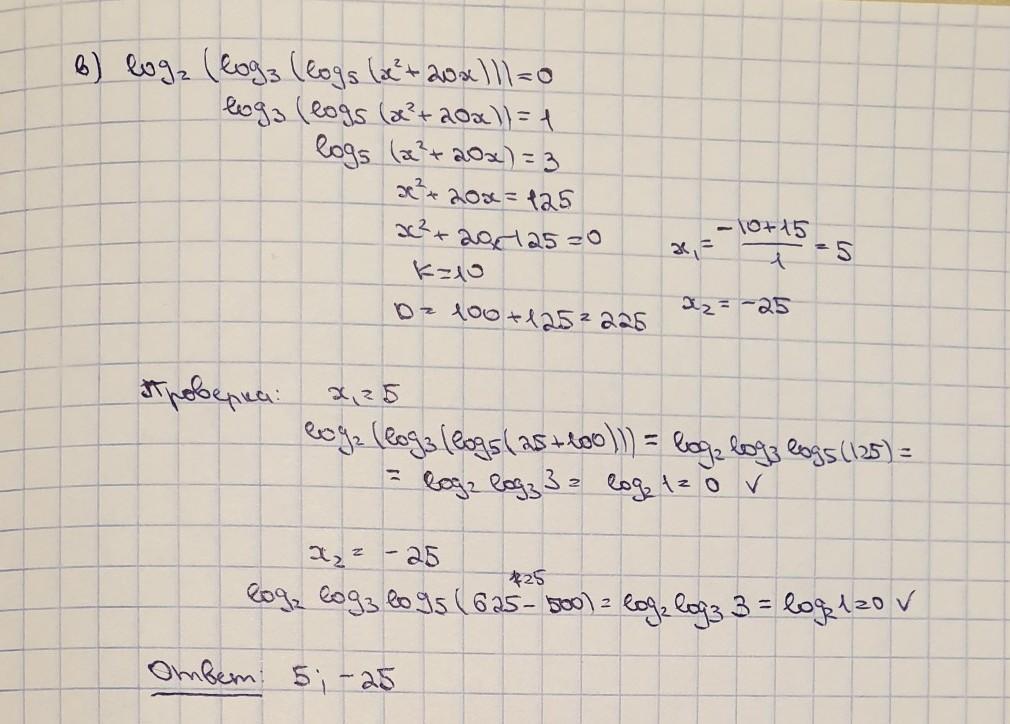 в) log₂ (log₃ (log₅ (x²+20x)))=0
log₃ (log₅ (x²+20x))=1
log₅ (x²+20x)=3
x²+20x=125
x²+20x-125=0
K=10
D= 100+125=225
x₁= (-10+15)/1 =5
x₂= -25
Проверка: x₁=5
log₂(log₃(log₅(25+100)))= log₂ log₃ log₅(125)=
= log₂ log₃ 3= log₂ 1=0 ✓
x₂= -25
125
log₂ log₃ log₅(625-500)= log₂ log₃ 3= log₂ 1=0 ✓
Ответ: 5; -25